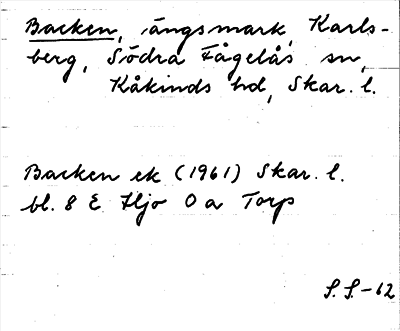 Backen, ängsmark, Karls-
berg, Södra Fågelås sn,
Kåkinds hd, Skar. l.
Backen ek (1961) Skar. l.
bl. 8 E Hjo 0 a Torp
S. S. -62